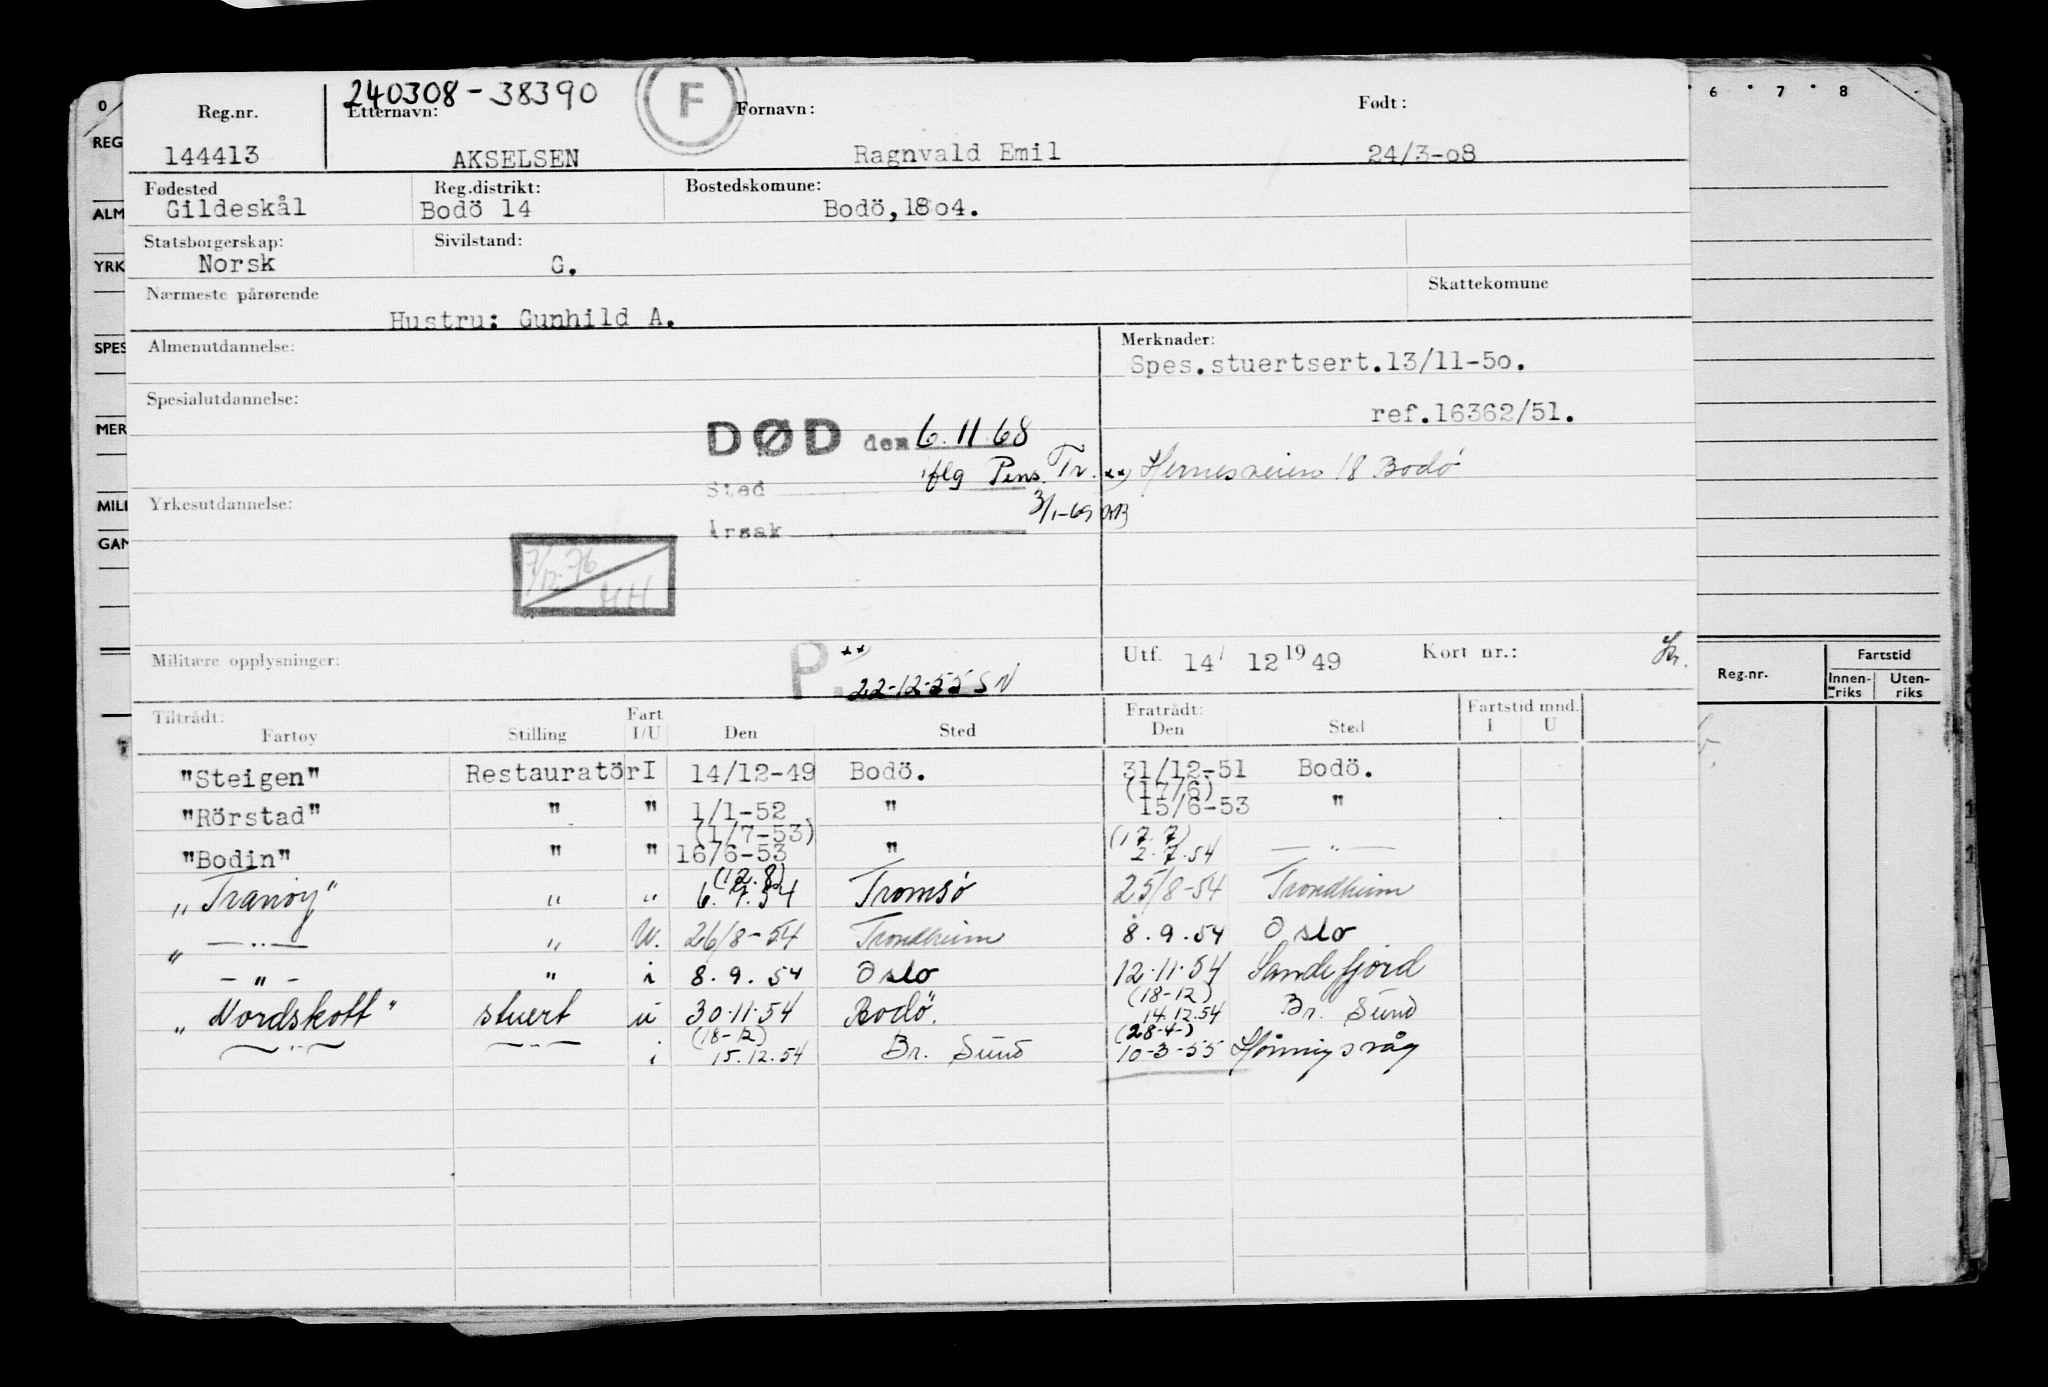 240308-38390
F
Reg.nr. Etternavn: Fornavn: Født:
144413 AKSELSEN Ragnvald Emil 24/3-08
Fødested Reg.distrikt: Bostedskomune:
Gildeskål Bodö 14 Bodö, 1804.
Statsborgerskap: Sivilstand:
Norsk G.
Nærmeste pårørende Skattekomune
Hustru: Gunhild A.
Almenutdannelse: Merknader:
Spes.stuertsert.13/11-50.
Spesialutdannelse:
ref.16362/51.
DØD den 6.11.68
iflg Pens. Tr. xx) Hernesveien 18 Bodø
Sted
Yrkesutdannelse: 3/1-69
Årsak
7/12-76
HH
Militære opplysninger: P. xx) Utf. 14/ 12 1949 Kort nr.:
22-12-55 SN
Tiltrådt: Fart Fratrådt: Fartstid mnd.
Fartøy Stilling I/U Den Sted Den Sted I U
"Steigen" Restauratör I 14/12-49 Bodö. 31/12-51 Bodö.
(17/6)
"Rörstad" " " 1/1-52 " 15/6-53 "
(1/7-53) (17.7)
"Bodin" " " 16/6-53 " 2.7.54 — " —
(12.8)
"Tranöy" " " 6.7.54 Tromsø 25/8-54 Trondheim
" — " — " U. 26/8-54 Trondheim 8.9.54 Oslo
- " - " i 8.9.54 Oslo 12.11.54 Sandefjord
(18-12)
"Nordskott" stuert u 30.11.54 Bodø. 14.12.54 Br. Sund
(18-12) (28-4-)
— " — — " — i 15.12.54 Br. Sund 10-3-55 Hønningsvåg
0 6 7 8
REG
ALM
YRK
SPES
MER
MILI
GAN
Reg.nr. Fartstid
Innen- Uten-
riks riks